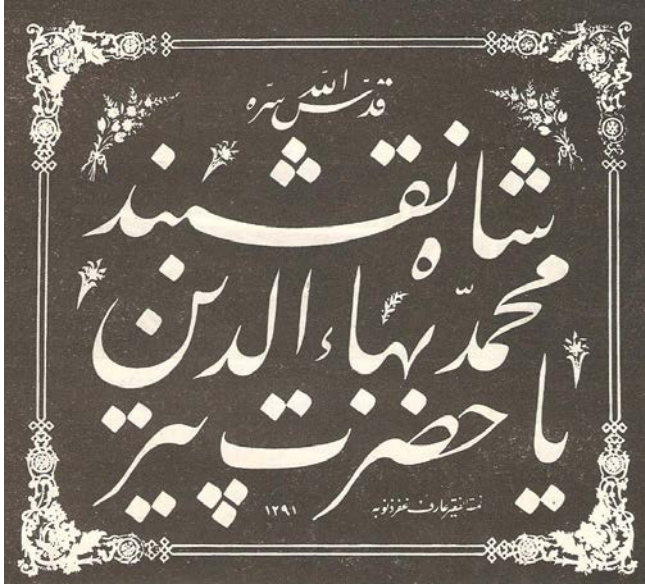 قدّس الله سرّه
شاه نقشبند
محمّد بهاء الدين
يا حضرت پير
نمقه الفقير عارف غفر ذنوبه
١٢٩١